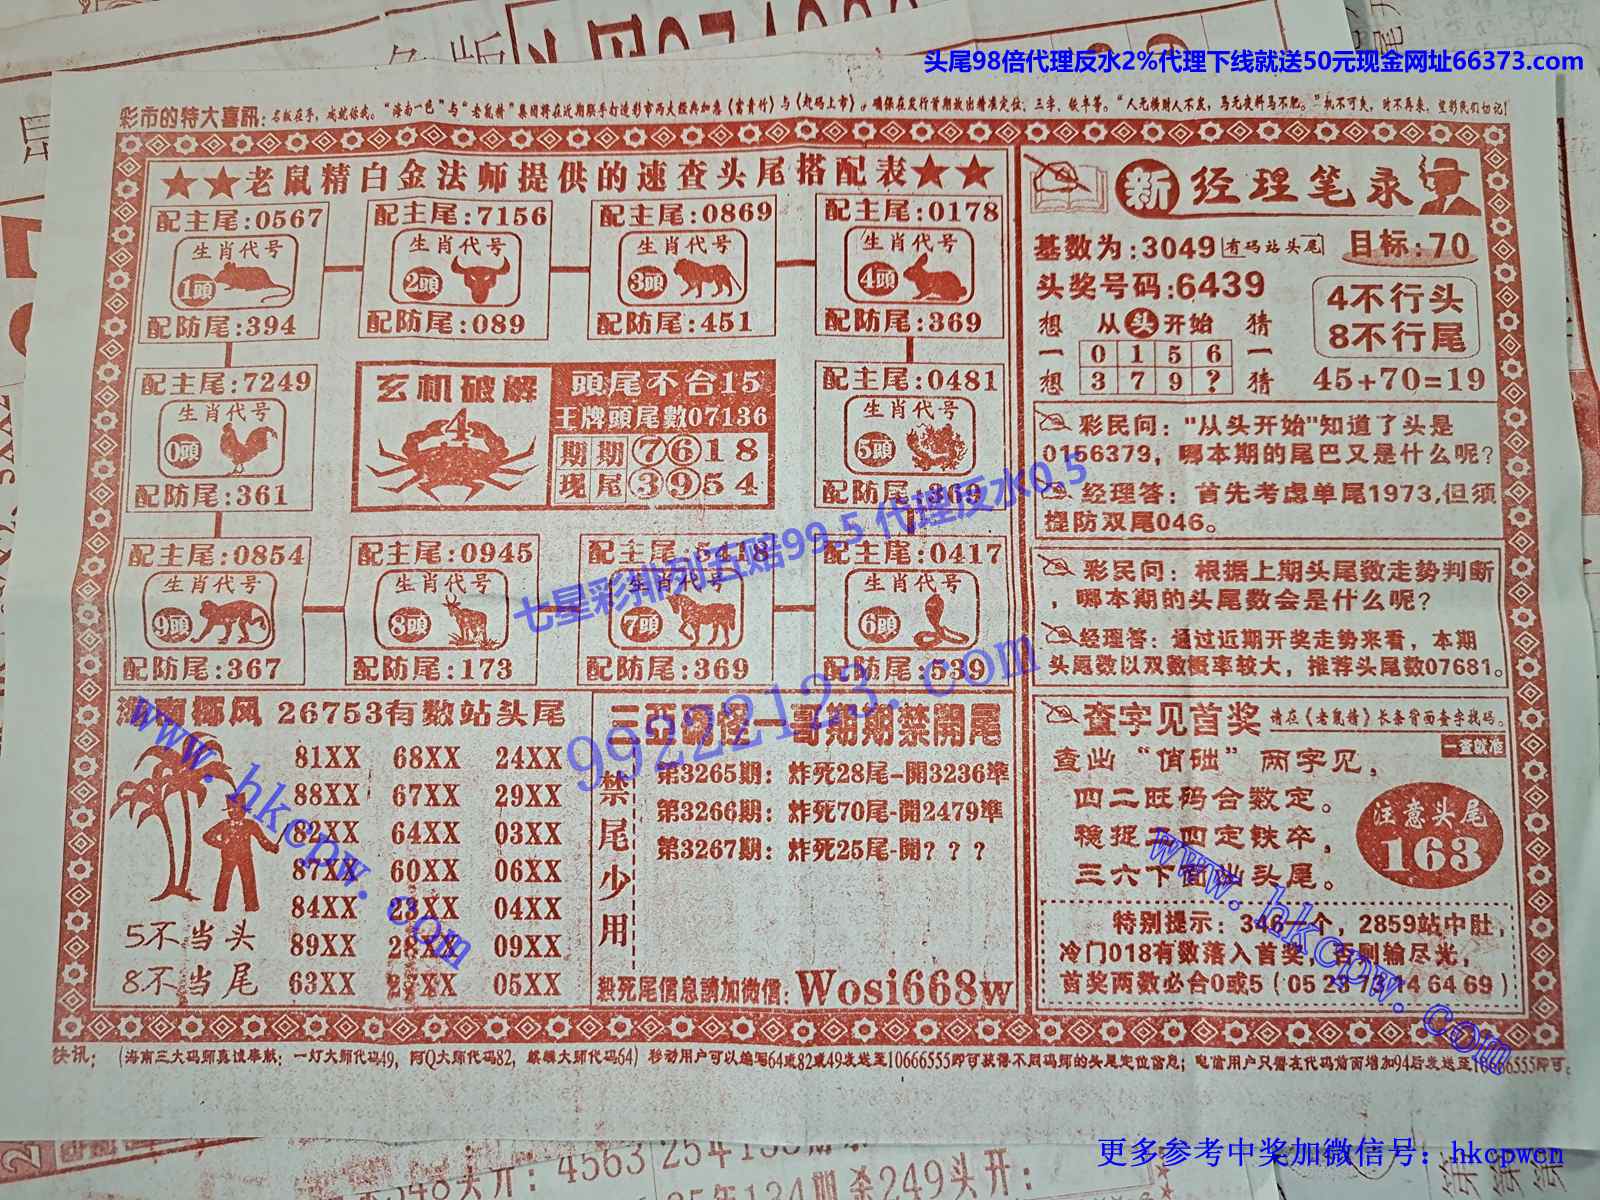 头尾98倍代理反水2%代理下线就送50元现金网址66373.com
彩市的特大喜訊:
★★老鼠精白金法师提供的速查头尾搭配表★★
配主尾:0567
生肖代号
1頭
配防尾:394
配主尾:7156
生肖代号
2頭
配防尾:089
配主尾:0869
生肖代号
3頭
配防尾:451
配主尾:0178
生肖代号
4頭
配防尾:369
配主尾:7249
生肖代号
0頭
配防尾:361
玄机破解
4
頭尾不合15
王牌頭尾數07136
期期⑦⑥18
现尾③⑨54
配主尾:0481
生肖代号
5頭
配防尾:369
配主尾:0854
生肖代号
9頭
配防尾:367
配主尾:0945
生肖代号
8頭
配防尾:173
配主尾:5418
生肖代号
7頭
配防尾:369
配主尾:0417
生肖代号
6頭
配防尾:539
七星彩排列五赔99.5 代理反水0.5
99222123.com
海南椰风 26753有数站头尾
81XX 68XX 24XX
88XX 67XX 29XX
82XX 64XX 03XX
87XX 60XX 06XX
84XX 23XX 04XX
89XX 28XX 09XX
63XX 25XX 05XX
5不当头
8不当尾
www.hkcpw.com
三亞 一哥期期禁開尾
禁尾少用
第3265期: 炸死28尾-開3236準
第3266期: 炸死70尾-開2479準
第3267期: 炸死25尾-開? ? ?
殺死尾信息請加微信: Wosi668w
新 经理笔录
基数为:3049 有码站头尾 目标:70
头奖号码:6439
4不行头
8不行尾
想一想 从头开始 猜一猜
0 1 5 6
3 7 9 ?
45+70=19
彩民问: "从头开始"知道了头是
0156379, 哪本期的尾巴又是什么呢?
经理答: 首先考虑单尾1973,但须
提防双尾046。
彩民问: 根据上期头尾数走势判断
, 哪本期的头尾数会是什么呢?
经理答: 通过近期开奖走势来看, 本期
头尾数以双数概率较大, 推荐头尾数07681。
查字见首奖 请在《老鼠精》长条背面查字找码。
一查就准
查出 “俏础” 两字见,
四二旺码合数定。
稳捉 四定铁卒,
三六下 出头尾。
注意头尾
163
www.hkcpw.com
特别提示: 346 个, 2859站中肚,
冷门018有数落入首奖, 否则输尽光,
首奖两数必合0或5 (05 23 73 14 64 69)
快讯: (海南三大码师真诚奉献: 一灯大师代码49, 阿Q大师代码82, 蝶蝶大师代码64) 移动用户可以编写64或82或49发送至10666555即可获得不同码师的头尾定位信息; 电信用户只需在代码前面增加94后发送至10666555即可。
更多参考中奖加微信号: hkcpwcn